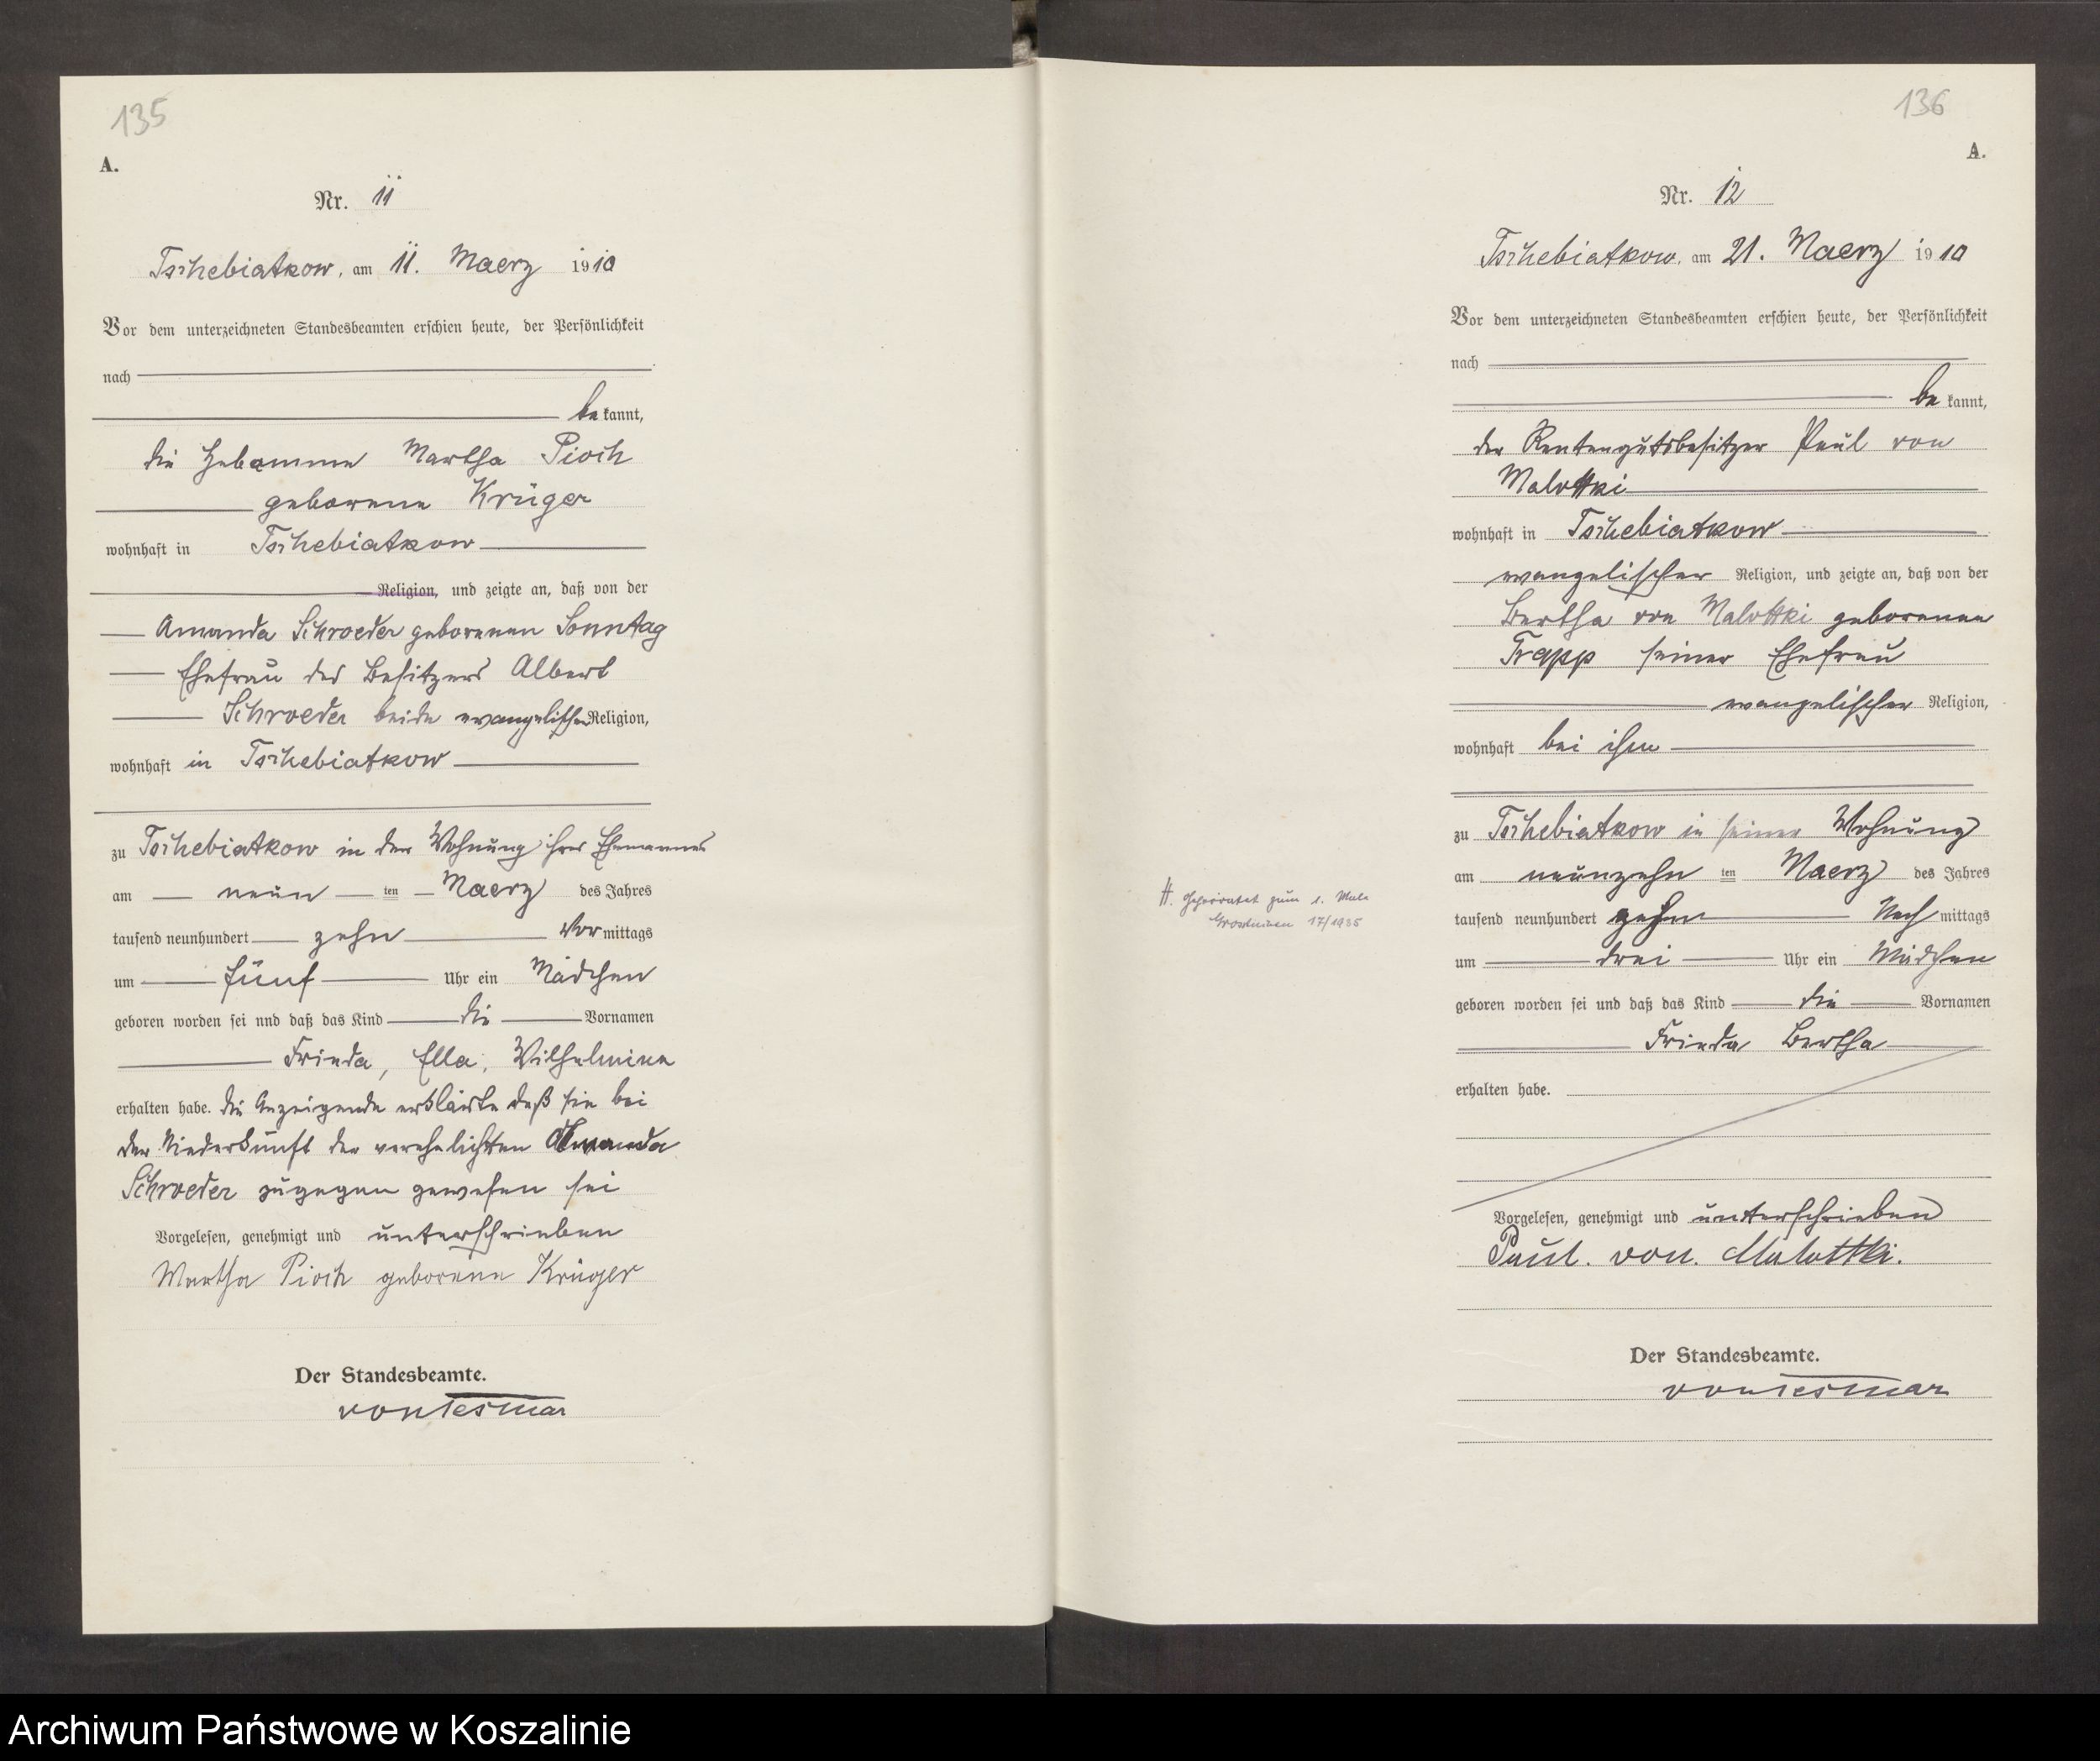 135
A.
Nr. 11
Tschebiatkow, am 11. Maerz 1910
Vor dem unterzeichneten Standesbeamten erschien heute, der Persönlichkeit
nach
be kannt,
die Hebamme Martha Pioch
geborene Krüger
wohnhaft in Tschebiatkow
Religion, und zeigte an, daß von der
Amanda Schroeder geborenen Sonntag
Ehefrau des Besitzers Albert
Schroeder beide evangelischer Religion,
wohnhaft in Tschebiatkow
zu Tschebiatkow in der Wohnung ihres Ehemannes
am neun ten Maerz des Jahres
tausend neunhundert zehn Vor mittags
um fünf Uhr ein Mädchen
geboren worden sei nnd daß das Kind die Vornamen
Frieda, Ella, Wilhelmine
erhalten habe. Die Anzeigende erklärte daß sie bei
der Niederkunft der verehelichten Amanda
Schroeder zugegen gewesen sei
Vorgelesen, genehmigt und unterschrieben
Martha Pioch geborene Krüger
Der Standesbeamte.
von Tesmar
136
A.
Nr. 12
Tschebiatkow, am 21. Maerz 1910
Vor dem unterzeichneten Standesbeamten erschien heute, der Persönlichkeit
nach
be kannt,
der Rentengutsbesitzer Paul von
Malottki
wohnhaft in Tschebiatkow
evangelischer Religion, und zeigte an, daß von der
Bertha von Malottki geborenen
Trapp seiner Ehefrau
evangelischer Religion,
wohnhaft bei ihm
zu Tschebiatkow in seiner Wohnung
am neunzehn ten Maerz des Jahres
tausend neunhundert zehn Nach mittags
um drei Uhr ein Mädchen
geboren worden sei und daß das Kind die Vornamen
Frieda Bertha
erhalten habe.
H. Geheiratet zum 1. Male
17/1935
Vorgelesen, genehmigt und unterschrieben
Paul. von. Malottki.
Der Standesbeamte.
von Tesmar
Archiwum Państwowe w Koszalinie